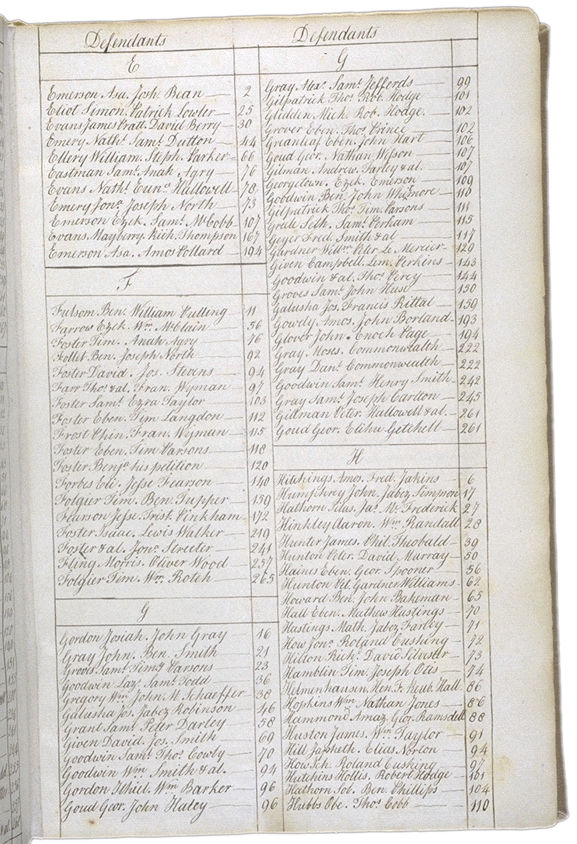 Defendants
E
Emerson Asa. Josh Bean 2
Eliot Simon. Patrick Lowler 25
Evans James Pratt. David Berry 30
Emery Nathl. Saml. Dutton 44
Ellery William. Steph. Parker 66
Eastman Saml. Anah Agry 76
Evans Nathl. Eunc. Hallowell 78
Emery Jona. Joseph North 73
Emerson Ezek. Saml. McCobb 107
Evans Mayberry. Rich. Thompson 167
Emerson Asa. Amos Pollard 194
F
Fulsom Ben. William Pulling 11
Farrow Ezek. Wm. McClain 56
Foster Tim. Anah Agry 76
Follet Ben. Joseph North 92
Foster David. Jos. Stevens 94
Farr Thos. & al. Fran. Wyman 97
Foster Saml. Ezra Taylor 103
Foster Eben. Tim Langdon 112
Frost Phin. Fran. Wyman 115
Foster Eben. Tim Parsons 118
Foster Benja. his petition 120
Forbes Eli. Jesse Pearson 140
Folgier Tim. Ben. Tupper 159
Pearson Jesse. Trist. Pinkham 172
Foster Isaac. Lewis Walker 219
Foster & al. Jona. Streeter 241
Fling Morris. Oliver Wood 257
Folgier Tim. Wm. Rotch 265
G
Gordon Josiah. John Gray 16
Gray John. Ben. Smith 21
Groves Saml. Timy. Parsons 23
Goodwin Laz. Saml. Todd 36
Gregory Wm. John M. Schaeffer 38
Galusha Jos. Jabez Robinson 46
Grant Saml. Peter Darley 58
Given David. Jos. Smith 69
Goodwin Saml. Thos. Cowby 70
Goodwin Wm. Smith & al. 94
Gordon Ithiel. Wm. Barker 96
Goud Geor. John Haley 96
Defendants
G
Gray Alex. Saml. Jeffords 99
Gilpatrick Thos. Rob. Hodge 101
Glidden Rich. Rob. Hodge. 102
Grover Eben. Thos. Prince 102
Greenleaf Eben. John Hart 106
Goud Geor. Nathan Wesson 107
Gilman Andrew. Farley & al. 107
Georgetown. Ezek. Emerson 109
Goodwin Ben. John Whitmore 110
Gilpatrick Thos. Tim. Parsons 111
Grele Seth. Saml. Perham 115
Geyer Fred. Smith & al 117
Gardner Willm. Peter Le Mercier 129
Given Campbell. Lem. Perkins 143
Goodwin & al. Thos. Percy 144
Groves Saml. John Huse 150
Galusha Jos. Francis Rittal 159
Gowdy Amos. John Borland 193
Glover John. Enoch Page 194
Gray Moses. Commonwealth 222
Gray Danl. Commonwealth 222
Goodwin Saml. Henry Smith 242
Gray Saml. Joseph Carlton 245
Gillman Peter. Hallowell & al. 261
Goud Geor. Elihu Getchell 261
H
Hitchings Amos. Fred. Jakins 6
Humphrey John. Jabez Simpson 17
Hathorn Silas. Jas. N. Frederick 27
Hinkley Aaron. Wm. Randall 28
Hunter James. Phil. Theobald 39
Hunton Peter. David Murray 50
Haines Eben. Geor. Spooner 56
Hunton Pet. Gardner Williams 62
Howard Ben. John Bakeman 65
Hall Eben. Mathew Hastings 70
Hastings Math. Jabez Farley 71
How Jona. Roland Cushing 72
Hilton Rich. David Silvester 73
Hamblin Tim. Joseph Otis 74
Helmenhausen Hen. F. Reub. Hall 86
Hopkins Wm. Nathan Jones 86
Hammond Amaz. Geor. Ramsdell 88
Huston James. Wm. Taylor 91
Hill Japheth. Elias Norton 94
How Ich. Roland Cushing 97
Hutchins Hollis. Robert Hodge 101
Hathorn Sol. Ben. Phillips 104
Hubbs Obe. Thos. Cobb 110